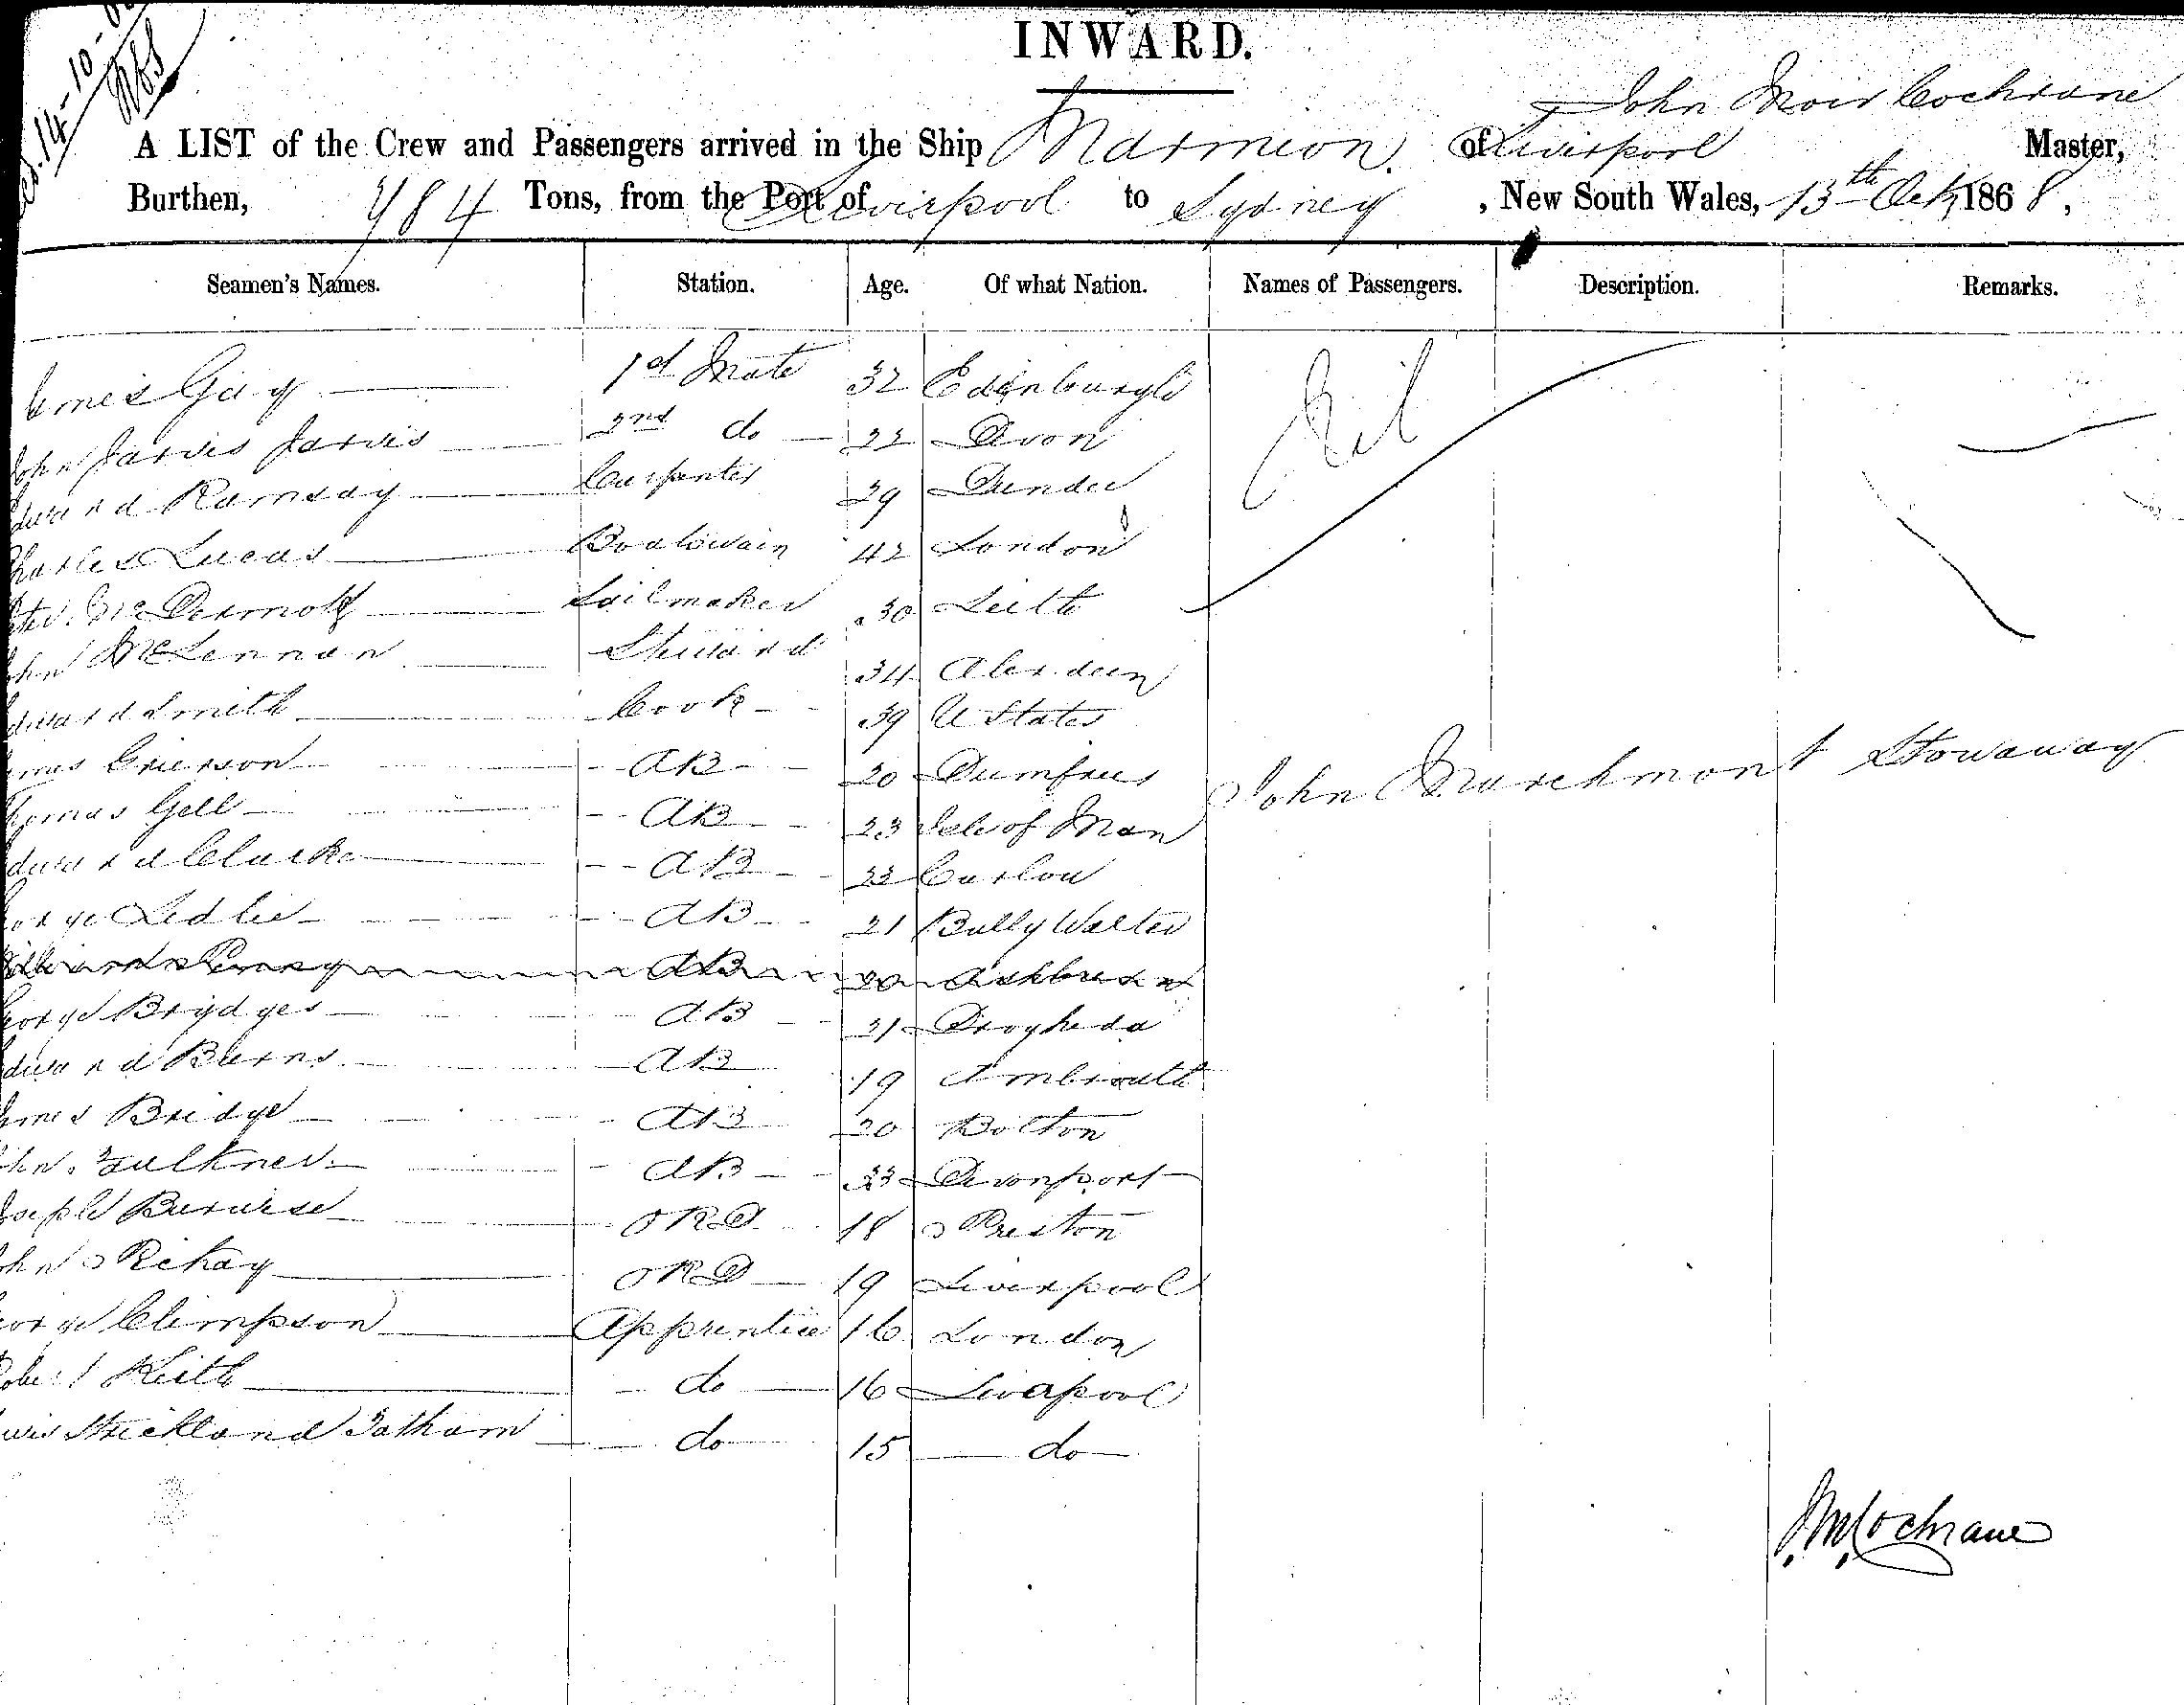 INWARD.
John Moir Cochrane
A LIST of the Crew and Passengers arrived in the Ship Marmion of Liverpool Master,
Burthen, 484 Tons, from the Port of Liverpool to Sydney, New South Wales, 13th Oct, 1868,
Seamen's Names. Station. Age. Of what Nation. Names of Passengers. Description. Remarks.
James Gay 1st Mate 32 Edinburgh Nil
John Jarvis Jarvis 2nd do 22 Devon
Edward Ramsay Carpenter 29 Dundee
Charles Lucas Boatswain 42 London
Peter McDermott Sailmaker 30 Leith
John McLennan Steward 34 Aberdeen
Edward Smith Cook 39 U States
James Grierson AB 20 Dumfries John Marchmont Stowaway
Thomas Gell AB 23 Isle of Man
Edward Clarke AB 22 Carlow
George Ledlie AB 21 Bally Walter
AB 20
George Brydges AB 21 Drogheda
Edward Burns AB 19
James Bridge AB 20 Bolton
John Faulkner AB 23 Devonport
Joseph ORD 18 Preston
John Rekay ORD 19 Liverpool
George Climpson Apprentice 16 London
Robert Keith do 16 Liverpool
Lewis Strickland Tatham do 15 do
J M Cochrane